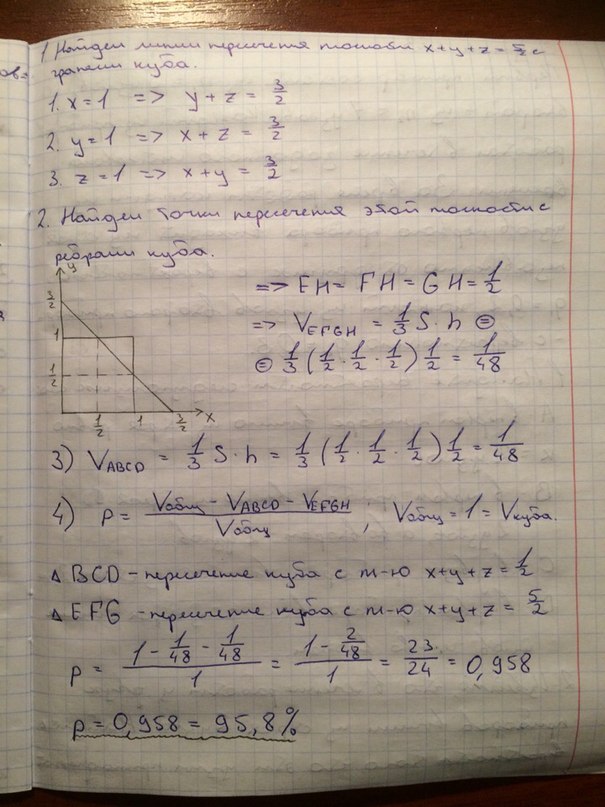 1 Найдем линии пересечения плоскости x+y+z = 5/2 с
гранями куба.
1. x=1 => y+z = 3/2
2. y=1 => x+z = 3/2
3. z=1 => x+y = 3/2
2. Найдем точки пересечения этой плоскости с
ребрами куба.
y
3/2
1
1/2
1/2
1
3/2
x
=> EH = FH = GH = 1/2
=> V_EFGH = 1/3 S·h =
= 1/3 (1/2 · 1/2 · 1/2) 1/2 = 1/48
3) V_ABCD = 1/3 S·h = 1/3 (1/2 · 1/2 · 1/2) 1/2 = 1/48
4) P = (Vобщ - V_ABCD - V_EFGH) / Vобщ ; Vобщ = 1 = Vкуба.
Δ BCD - пересечение куба с пл-ю x+y+z = 1/2
Δ EFG - пересечение куба с пл-ю x+y+z = 5/2
P = (1 - 1/48 - 1/48) / 1 = (1 - 2/48) / 1 = 23/24 = 0,958
p = 0,958 = 95,8%